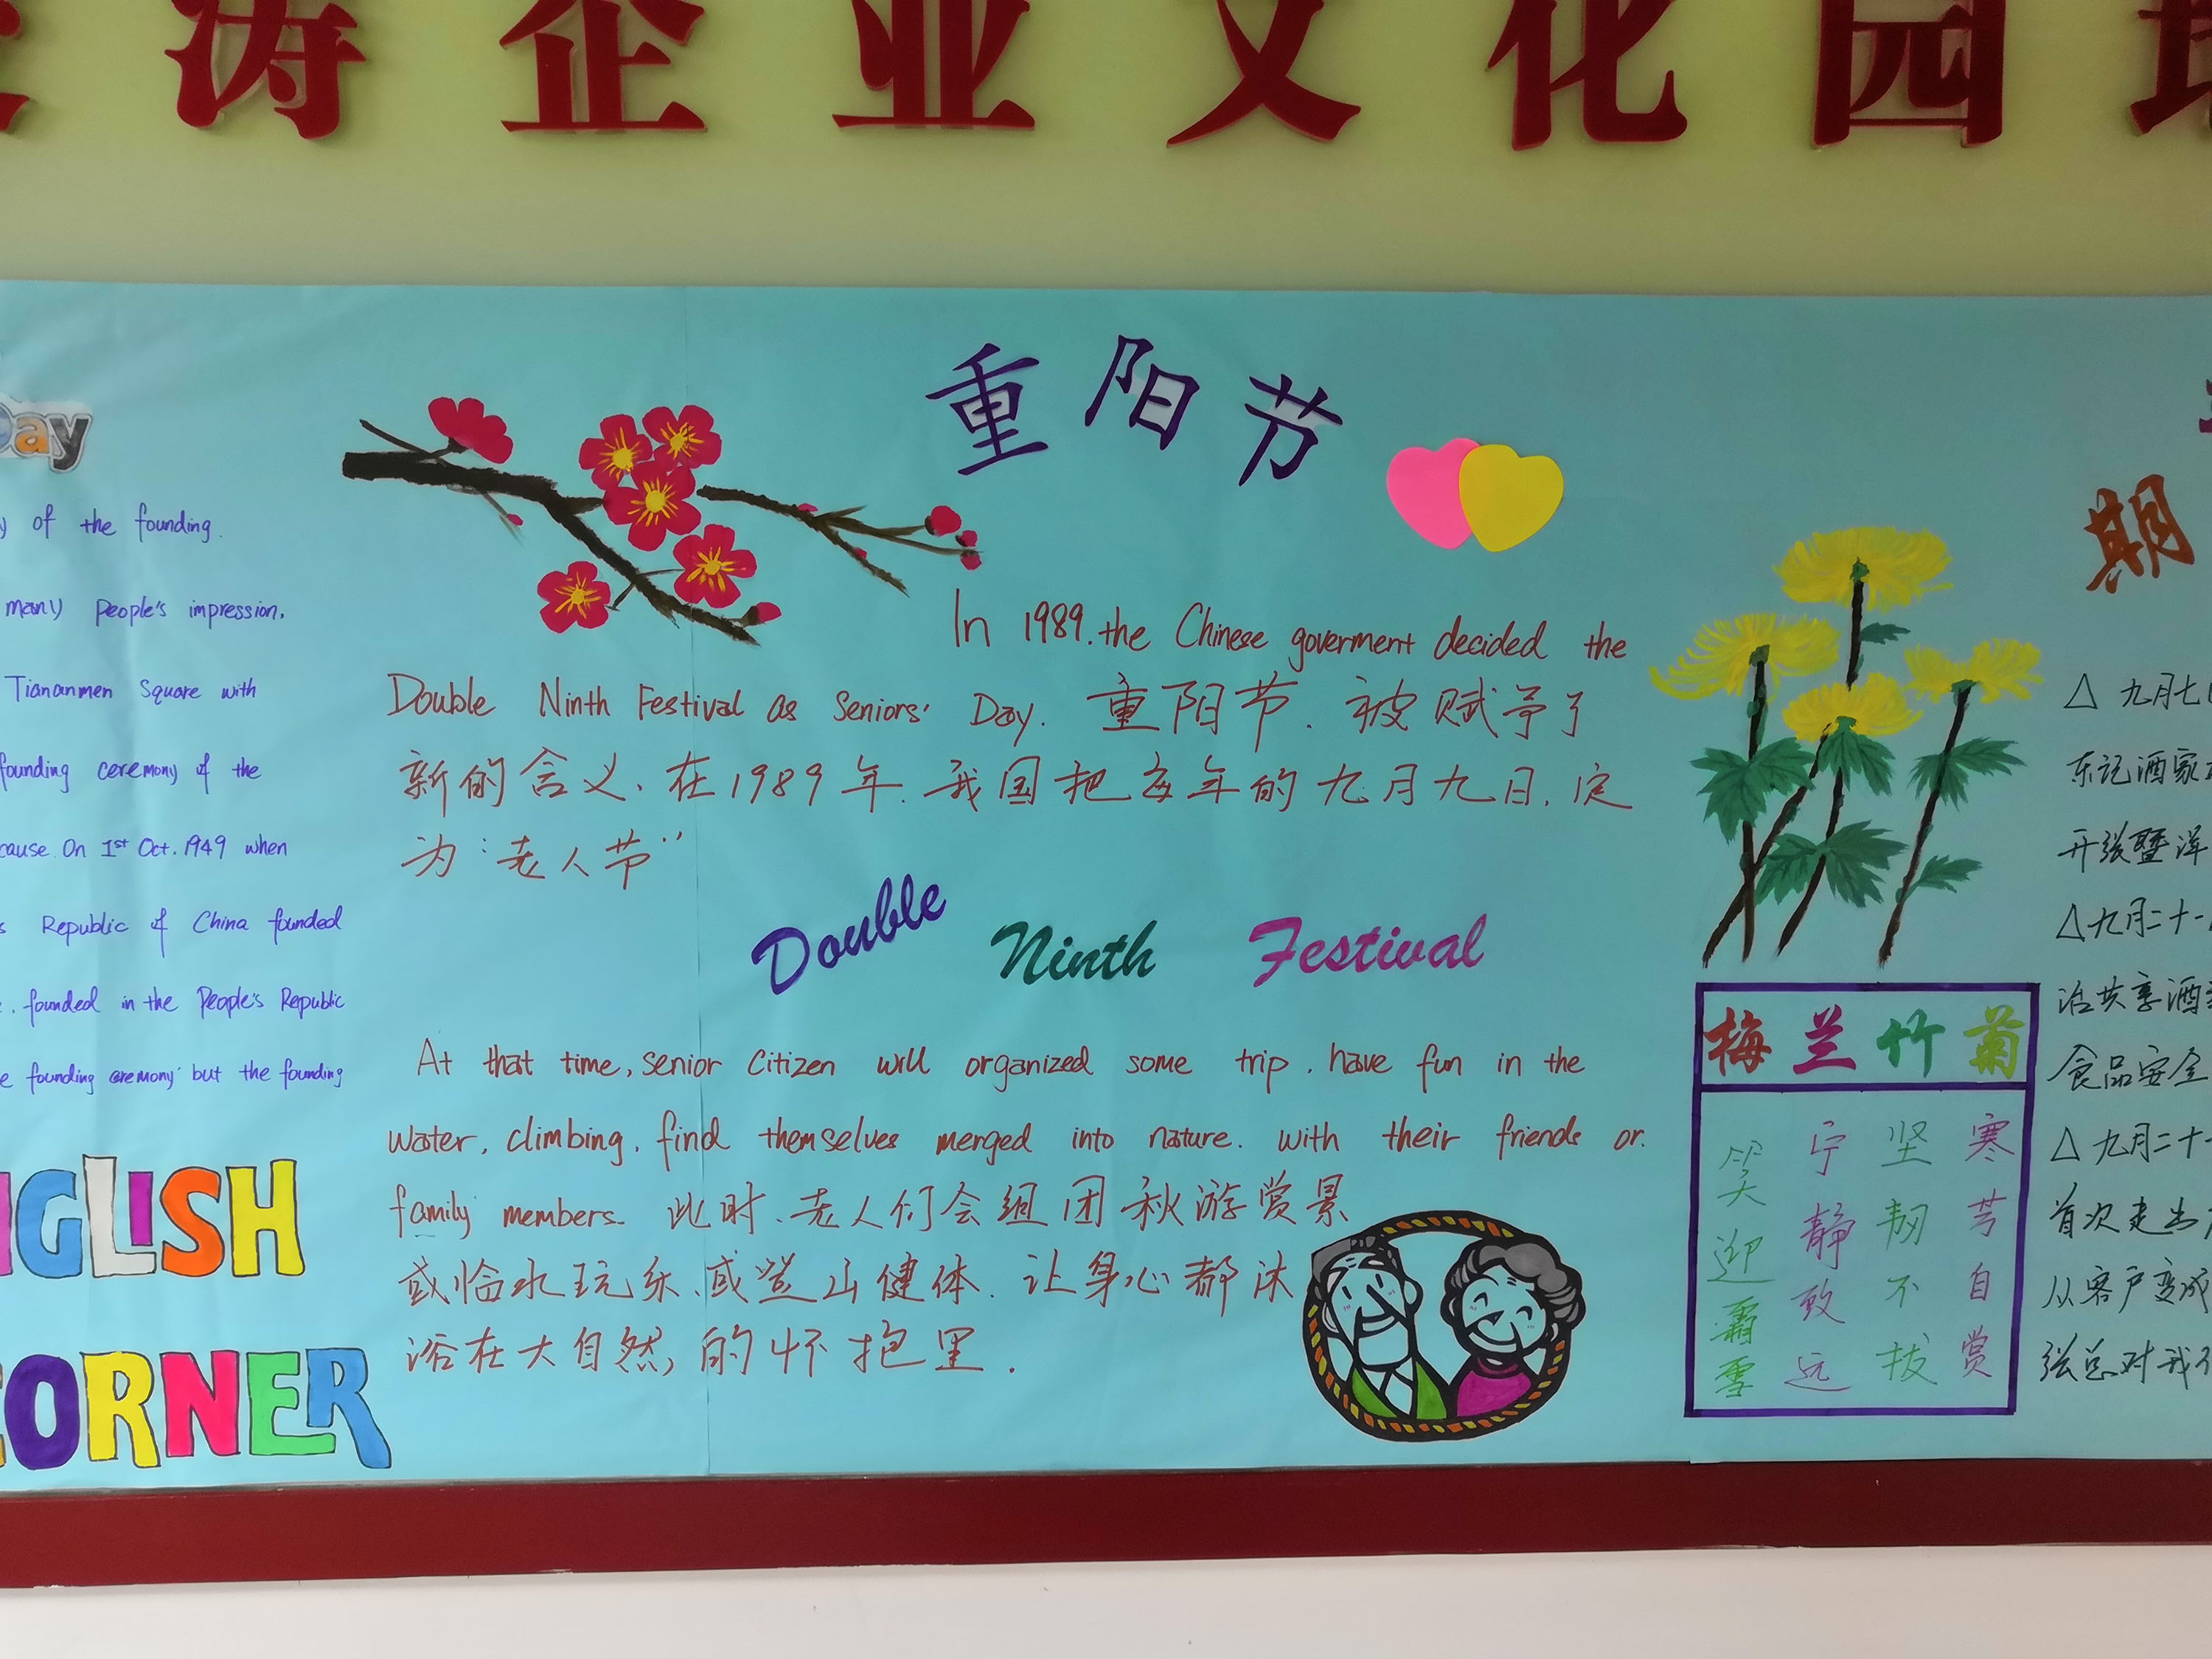 涛企业文化园
Day
of the founding.
many people's impression,
Tiananmen Square with
founding ceremony of the
cause On 1st Oct. 1949 when
Republic of China founded
founded in the People's Republic
founding ceremony but the founding
ENGLISH
CORNER
重阳节
In 1989. the Chinese goverment decided the
Double Ninth Festival as Seniors' Day. 重阳节. 被赋予了
新的含义. 在1989年. 我国把每年的九月九日. 定
为“老人节”
Double Ninth Festival
At that time, senior citizen will organized some trip. have fun in the
water, climbing, find themselves merged into nature. with their friends or.
family members. 此时. 老人们会组团秋游赏景
或临水玩乐、或登山健体. 让身心都沐
浴在大自然, 的怀抱里.
梅兰竹菊
笑迎霜雪
宁静致远
坚韧不拔
寒芳自赏
期
△ 九月七
东记酒家
开张暨洋
△九月二十一
治共享酒
食品安全
△ 九月二十
首次走出
从客户变成
张总对我